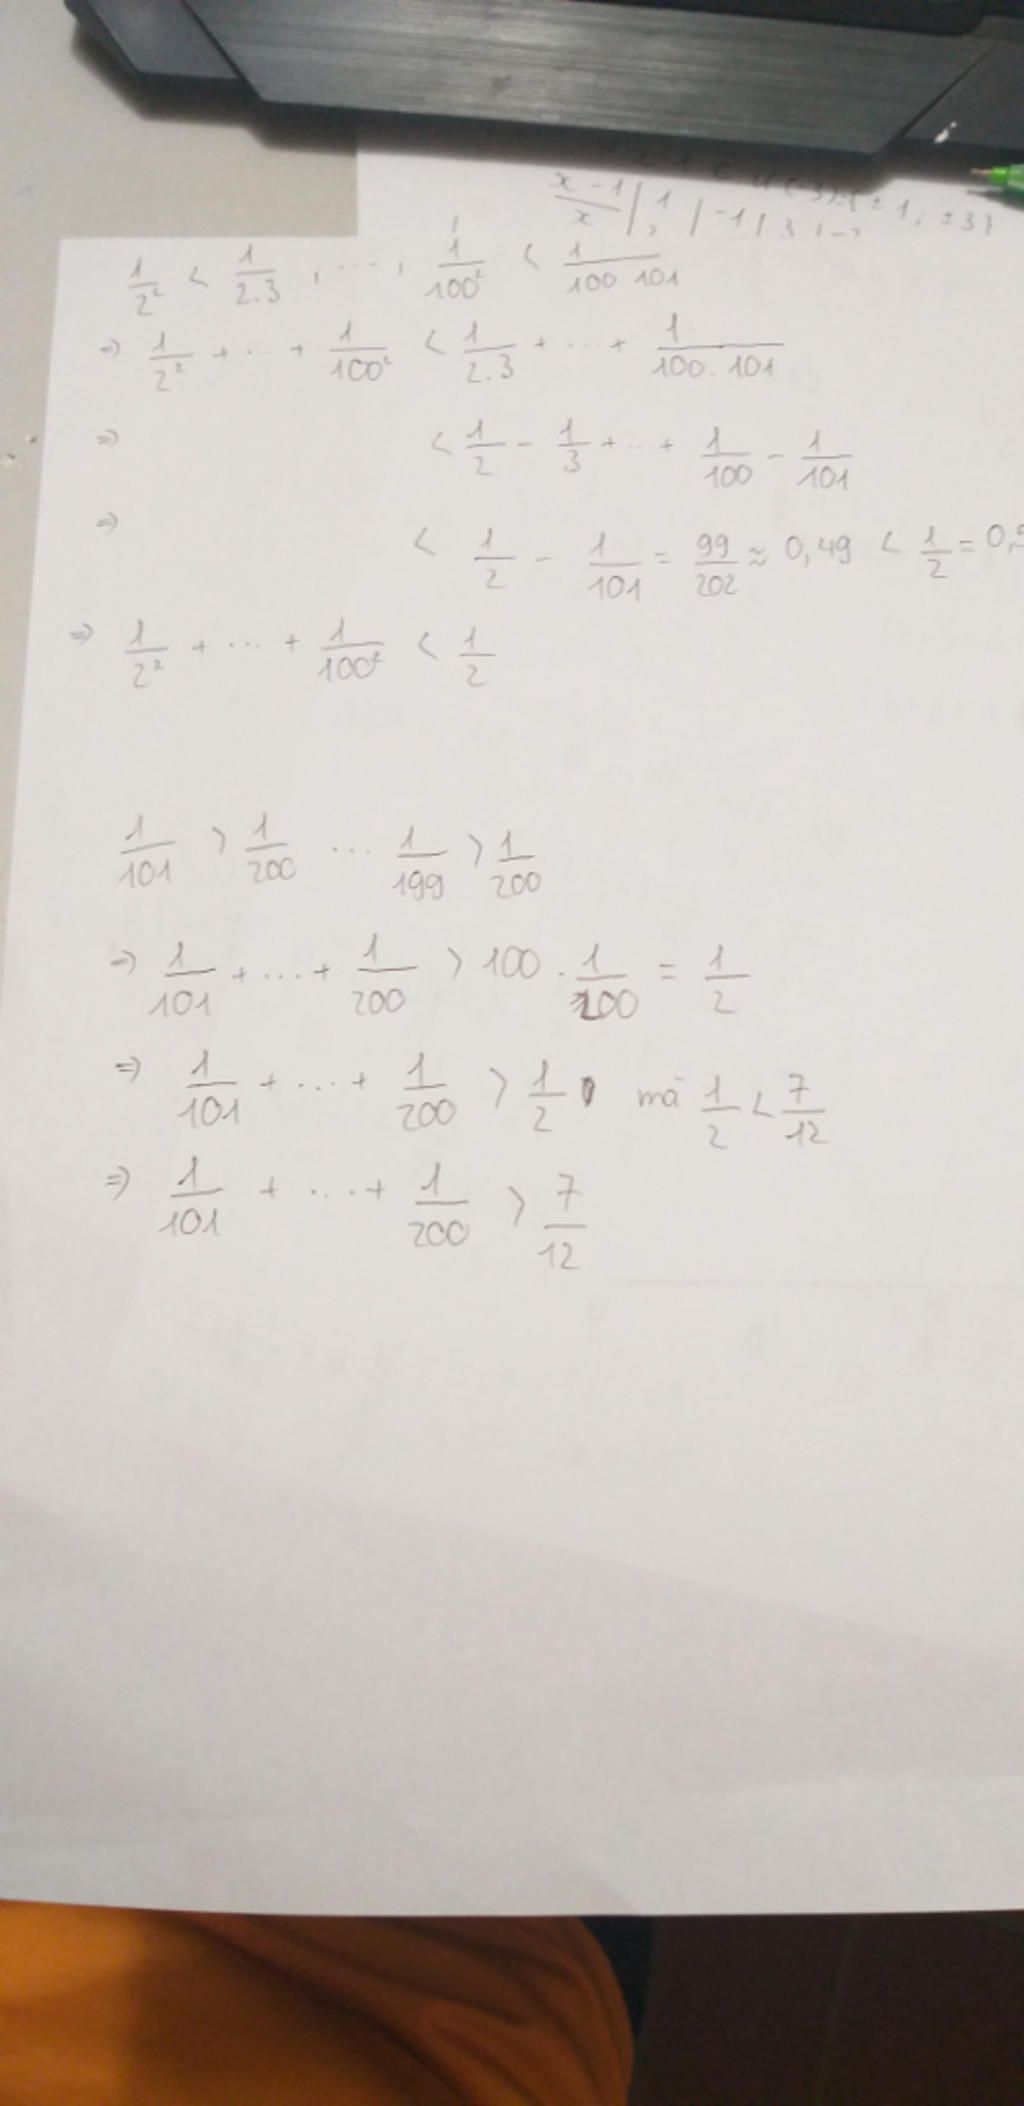 x-1/x | 1 | -1 | 3
1/2² < 1/2.3 , ... , 1/100² < 1/100 101
=> 1/2² + ... + 1/100² < 1/2.3 + ... + 1/100.101
=> < 1/2 - 1/3 + ... + 1/100 - 1/101
=> < 1/2 - 1/101 = 99/202 ≈ 0,49 < 1/2 = 0,
=> 1/2² + ... + 1/100² < 1/2
1/101 > 1/200 ... 1/199 > 1/200
=> 1/101 + ... + 1/200 > 100 . 1/200 = 1/2
=> 1/101 + ... + 1/200 > 1/2 mà 1/2 < 7/12
=> 1/101 + ... + 1/200 > 7/12